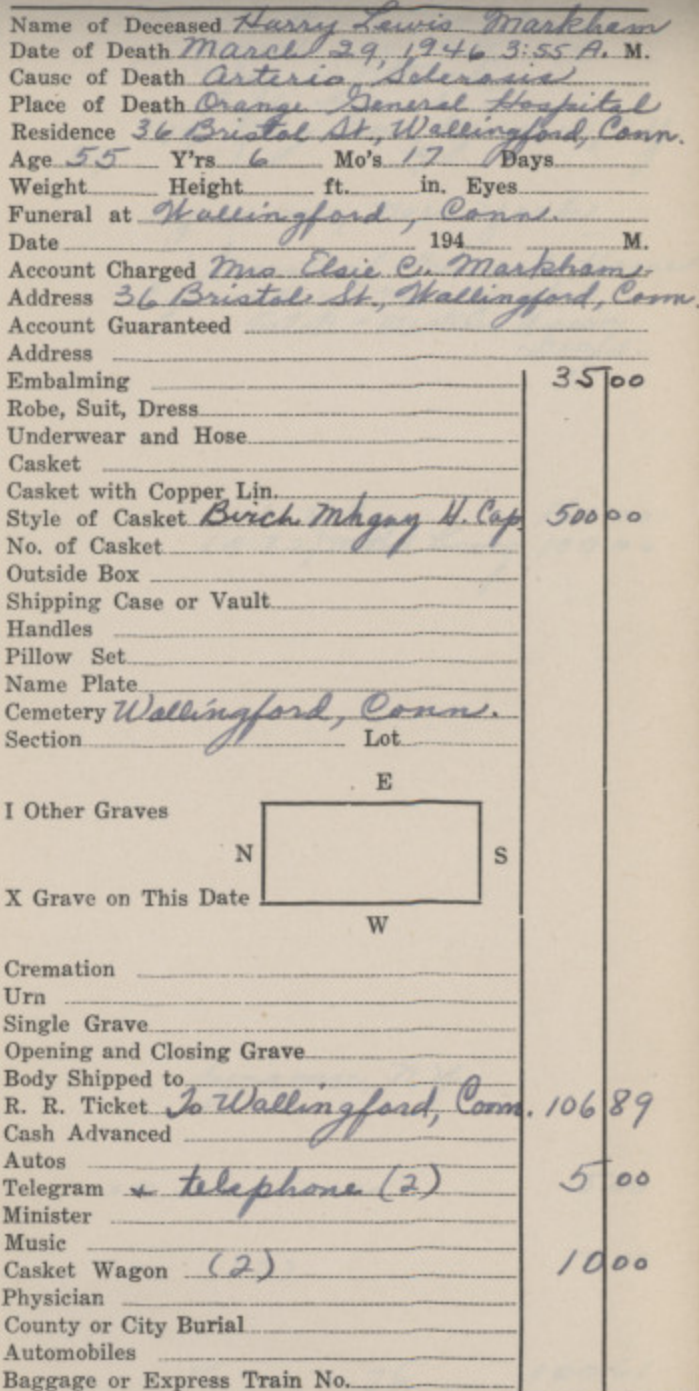 Name of Deceased Harry Lewis Markham
Date of Death March 29, 1946 3:55 A. M.
Cause of Death Arterio Sclerosis
Place of Death Orange General Hospital
Residence 36 Bristol St., Wallingford, Conn.
Age 55 Y'rs 6 Mo's 17 Days
Weight Height ft. in. Eyes
Funeral at Wallingford, Conn.
Date 194 M.
Account Charged Mrs Elsie C. Markham
Address 36 Bristol St., Wallingford, Conn.
Account Guaranteed
Address
Embalming 35 00
Robe, Suit, Dress
Underwear and Hose
Casket
Casket with Copper Lin.
Style of Casket Birch Mhgny H. Cap 500 00
No. of Casket
Outside Box
Shipping Case or Vault
Handles
Pillow Set
Name Plate
Cemetery Wallingford, Conn.
Section Lot
E
I Other Graves
N S
X Grave on This Date
W
Cremation
Urn
Single Grave
Opening and Closing Grave
Body Shipped to
R. R. Ticket To Wallingford, Conn. 106 89
Cash Advanced
Autos
Telegram + telephone (2) 5 00
Minister
Music
Casket Wagon (2) 10 00
Physician
County or City Burial
Automobiles
Baggage or Express Train No.